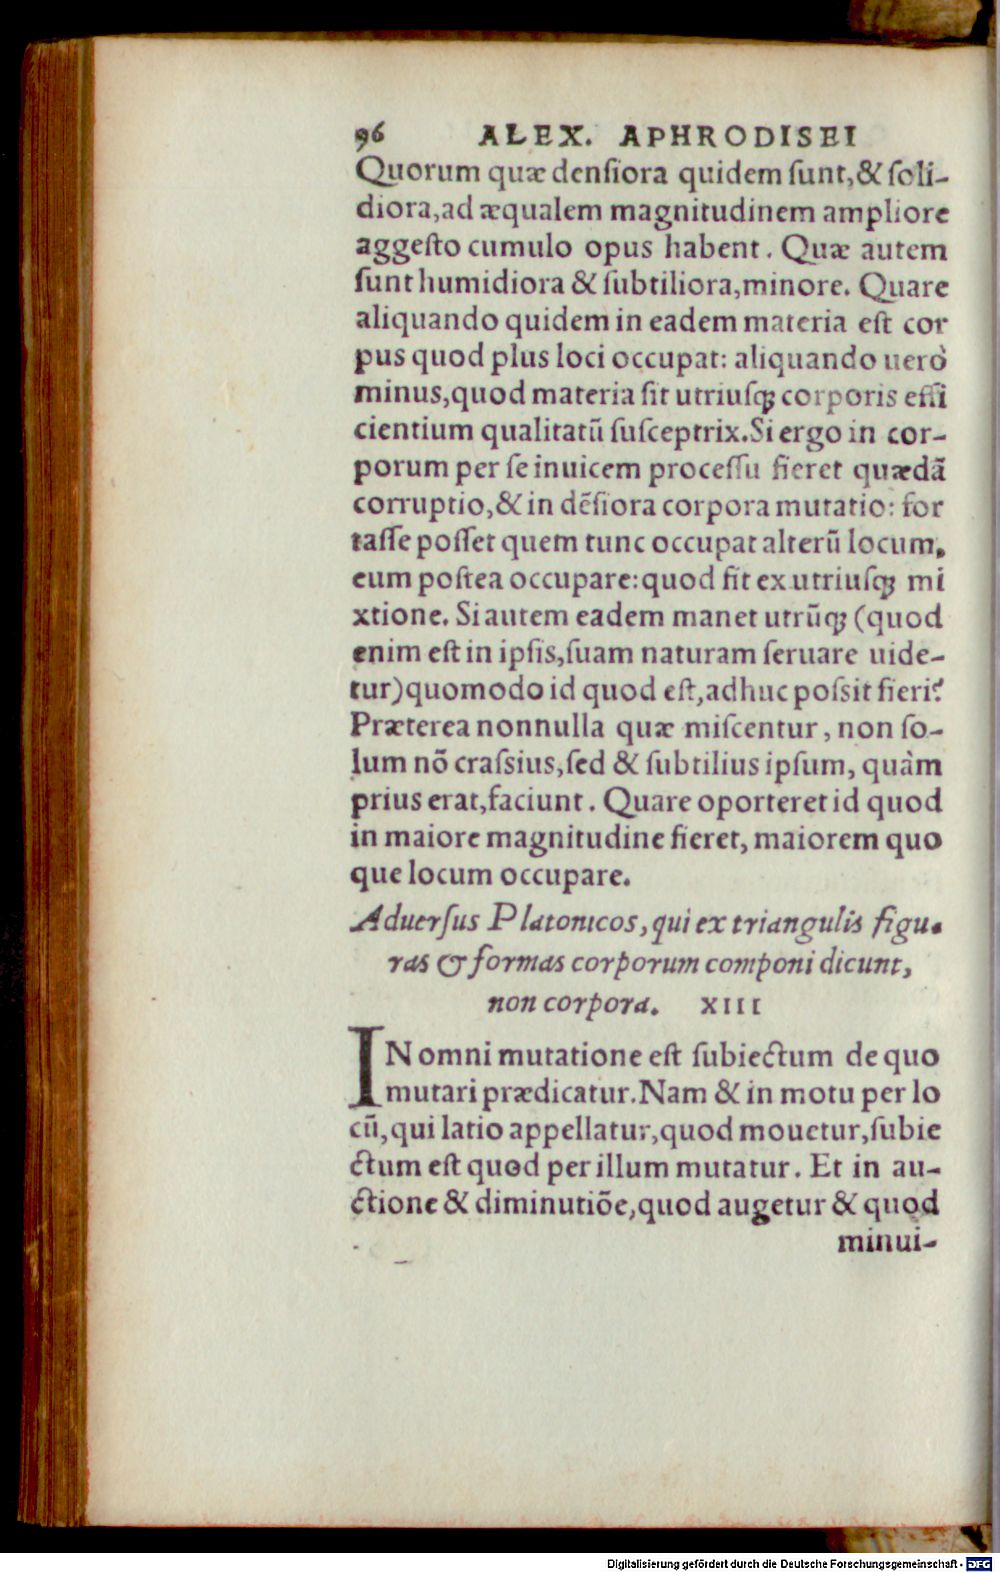 96 ALEX. APHRODISEI
Quorum quæ densiora quidem sunt,& soli-
diora,ad æqualem magnitudinem ampliore
aggesto cumulo opus habent. Quæ autem
sunt humidiora & subtiliora,minore. Quare
aliquando quidem in eadem materia est cor
pus quod plus loci occupat: aliquando uerò
minus,quod materia sit utriusq; corporis effi
cientium qualitatũ susceptrix.Si ergo in cor-
porum per se inuicem processu fieret quædã
corruptio,& in dẽsiora corpora mutatio: for
tasse posset quem tunc occupat alterũ locum,
eum postea occupare:quod fit ex utriusq; mi
xtione. Si autem eadem manet utrũq; (quod
enim est in ipsis,suam naturam seruare uide-
tur)quomodo id quod est,adhuc possit fieri?
Præterea nonnulla quæ miscentur, non so-
lum nõ crassius,sed & subtilius ipsum, quàm
prius erat,faciunt. Quare oporteret id quod
in maiore magnitudine fieret, maiorem quo
que locum occupare.
Aduersus Platonicos, qui ex triangulis figu-
ras & formas corporum componi dicunt,
non corpora. XIII
IN omni mutatione est subiectum de quo
mutari prædicatur.Nam & in motu per lo
cũ,qui latio appellatur,quod mouetur,subie
ctum est quod per illum mutatur. Et in au-
ctione & diminutiõe,quod augetur & quod
minui-
Digitalisierung gefördert durch die Deutsche Forschungsgemeinschaft - DFG